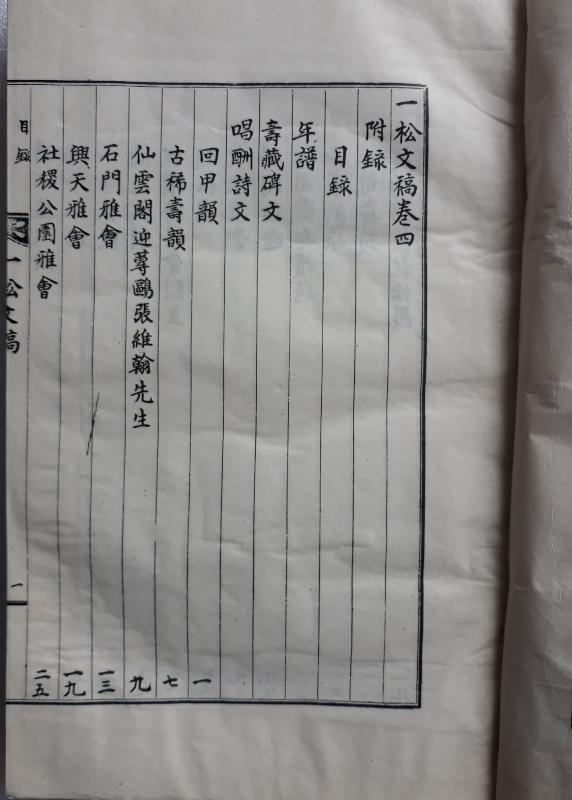 一松文稿卷四
附録
目録
年譜
壽藏碑文
唱酬詩文
回甲韻 一
古稀壽韻 七
仙雲閣迎蓴鷗張維翰先生 九
石門雅會 一三
興天雅會 一九
社稷公園雅會 二五
目録 一松文稿 一